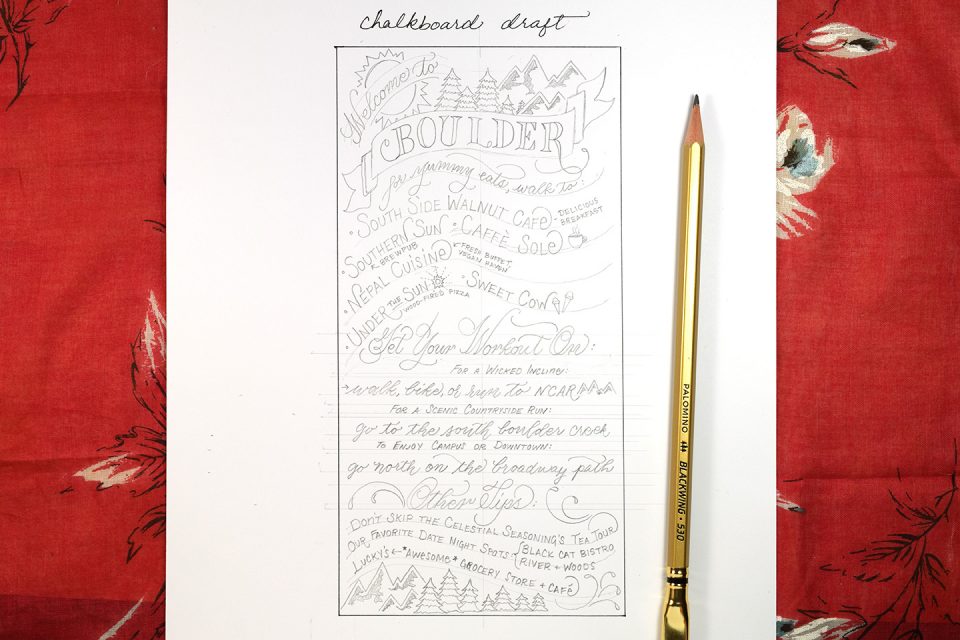 chalkboard draft
Welcome to
BOULDER
for yummy eats, walk to:
• SOUTH SIDE WALNUT CAFÉ - DELICIOUS BREAKFAST
• SOUTHERN SUN • CAFFÈ SOLE
BREWPUB
• NEPAL CUISINE FRESH BUFFET, VEGAN HAVEN
• UNDER THE SUN • SWEET COW
WOOD-FIRED PIZZA
Get Your Workout On:
FOR A WICKED INCLINE:
walk, bike, or run to NCAR
FOR A SCENIC COUNTRYSIDE RUN:
go to the south boulder creek
TO ENJOY CAMPUS OR DOWNTOWN:
go north on the broadway path
Other Tips:
DON'T SKIP THE CELESTIAL SEASONING'S TEA TOUR
OUR FAVORITE DATE NIGHT SPOTS: BLACK CAT BISTRO
RIVER + WOODS
LUCKY'S ← *AWESOME* GROCERY STORE + CAFÉ
PALOMINO BLACKWING • 530